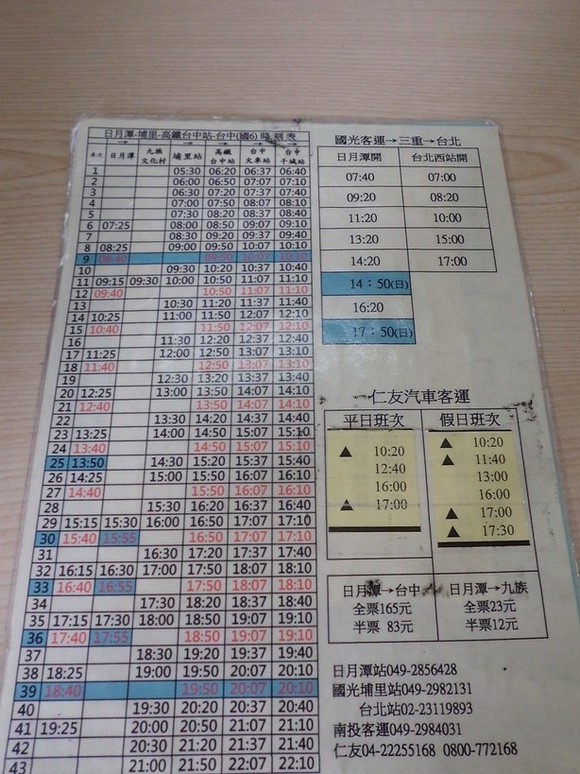 日月潭-埔里-高鐵台中站-台中(國6) 時刻表
車次 日月潭 九族文化村 埔里站 高鐵台中站 台中火車站 台中干城站
1 05:30 06:20 06:37 06:40
2 06:00 06:50 07:07 07:10
3 06:30 07:20 07:37 07:40
4 07:00 07:50 08:07 08:10
5 07:30 08:20 08:37 08:40
6 07:25 08:00 08:50 09:07 09:10
7 08:30 09:20 09:37 09:40
8 08:25 09:00 09:50 10:07 10:10
9 08:40 09:50 10:07 10:10
10 09:30 10:20 10:37 10:40
11 09:15 09:30 10:00 10:50 11:07 11:10
12 09:40 10:50 11:07 11:10
13 10:30 11:20 11:37 11:40
14 10:25 11:00 11:50 12:07 12:10
15 10:40 11:50 12:07 12:10
16 11:30 12:20 12:37 12:40
17 11:25 12:00 12:50 13:07 13:10
18 11:40 12:50 13:07 13:10
19 12:30 13:20 13:37 13:40
20 12:25 13:00 13:50 14:07 14:10
21 12:40 13:50 14:07 14:10
22 13:30 14:20 14:37 14:40
23 13:25 14:00 14:50 15:07 15:10
24 13:40 14:50 15:07 15:10
25 13:50 14:30 15:20 15:37 15:40
26 14:25 15:00 15:50 16:07 16:10
27 14:40 15:50 16:07 16:10
28 15:30 16:20 16:37 16:40
29 15:15 15:30 16:00 16:50 17:07 17:10
30 15:40 15:55 16:50 17:07 17:10
31 16:30 17:20 17:37 17:40
32 16:15 16:30 17:00 17:50 18:07 18:10
33 16:40 16:55 17:50 18:07 18:10
34 17:30 18:20 18:37 18:40
35 17:15 17:30 18:00 18:50 19:07 19:10
36 17:40 17:55 18:50 19:07 19:10
37 18:30 19:20 19:37 19:40
38 18:25 19:00 19:50 20:07 20:10
39 18:40 19:50 20:07 20:10
40 19:30 20:20 20:37 20:40
41 19:25 20:00 20:50 21:07 21:10
42 20:30 21:20 21:37 21:40
43 21:00 21:50 22:07 22:10
國光客運→三重→台北
日月潭開 台北西站開
07:40 07:00
09:20 08:20
11:20 10:00
13:20 15:00
14:20 17:00
14：50(日)
16:20
17：50(日)
仁友汽車客運
平日班次 假日班次
▲ 10:20 ▲ 10:20
12:40 ▲ 11:40
16:00 13:00
▲ 17:00 16:00
▲ 17:00
▲ 17:30
日月潭→台中 日月潭→九族
全票165元 全票23元
半票 83元 半票12元
日月潭站049-2856428
國光埔里站049-2982131
台北站02-23119893
南投客運049-2984031
仁友04-22255168 0800-772168